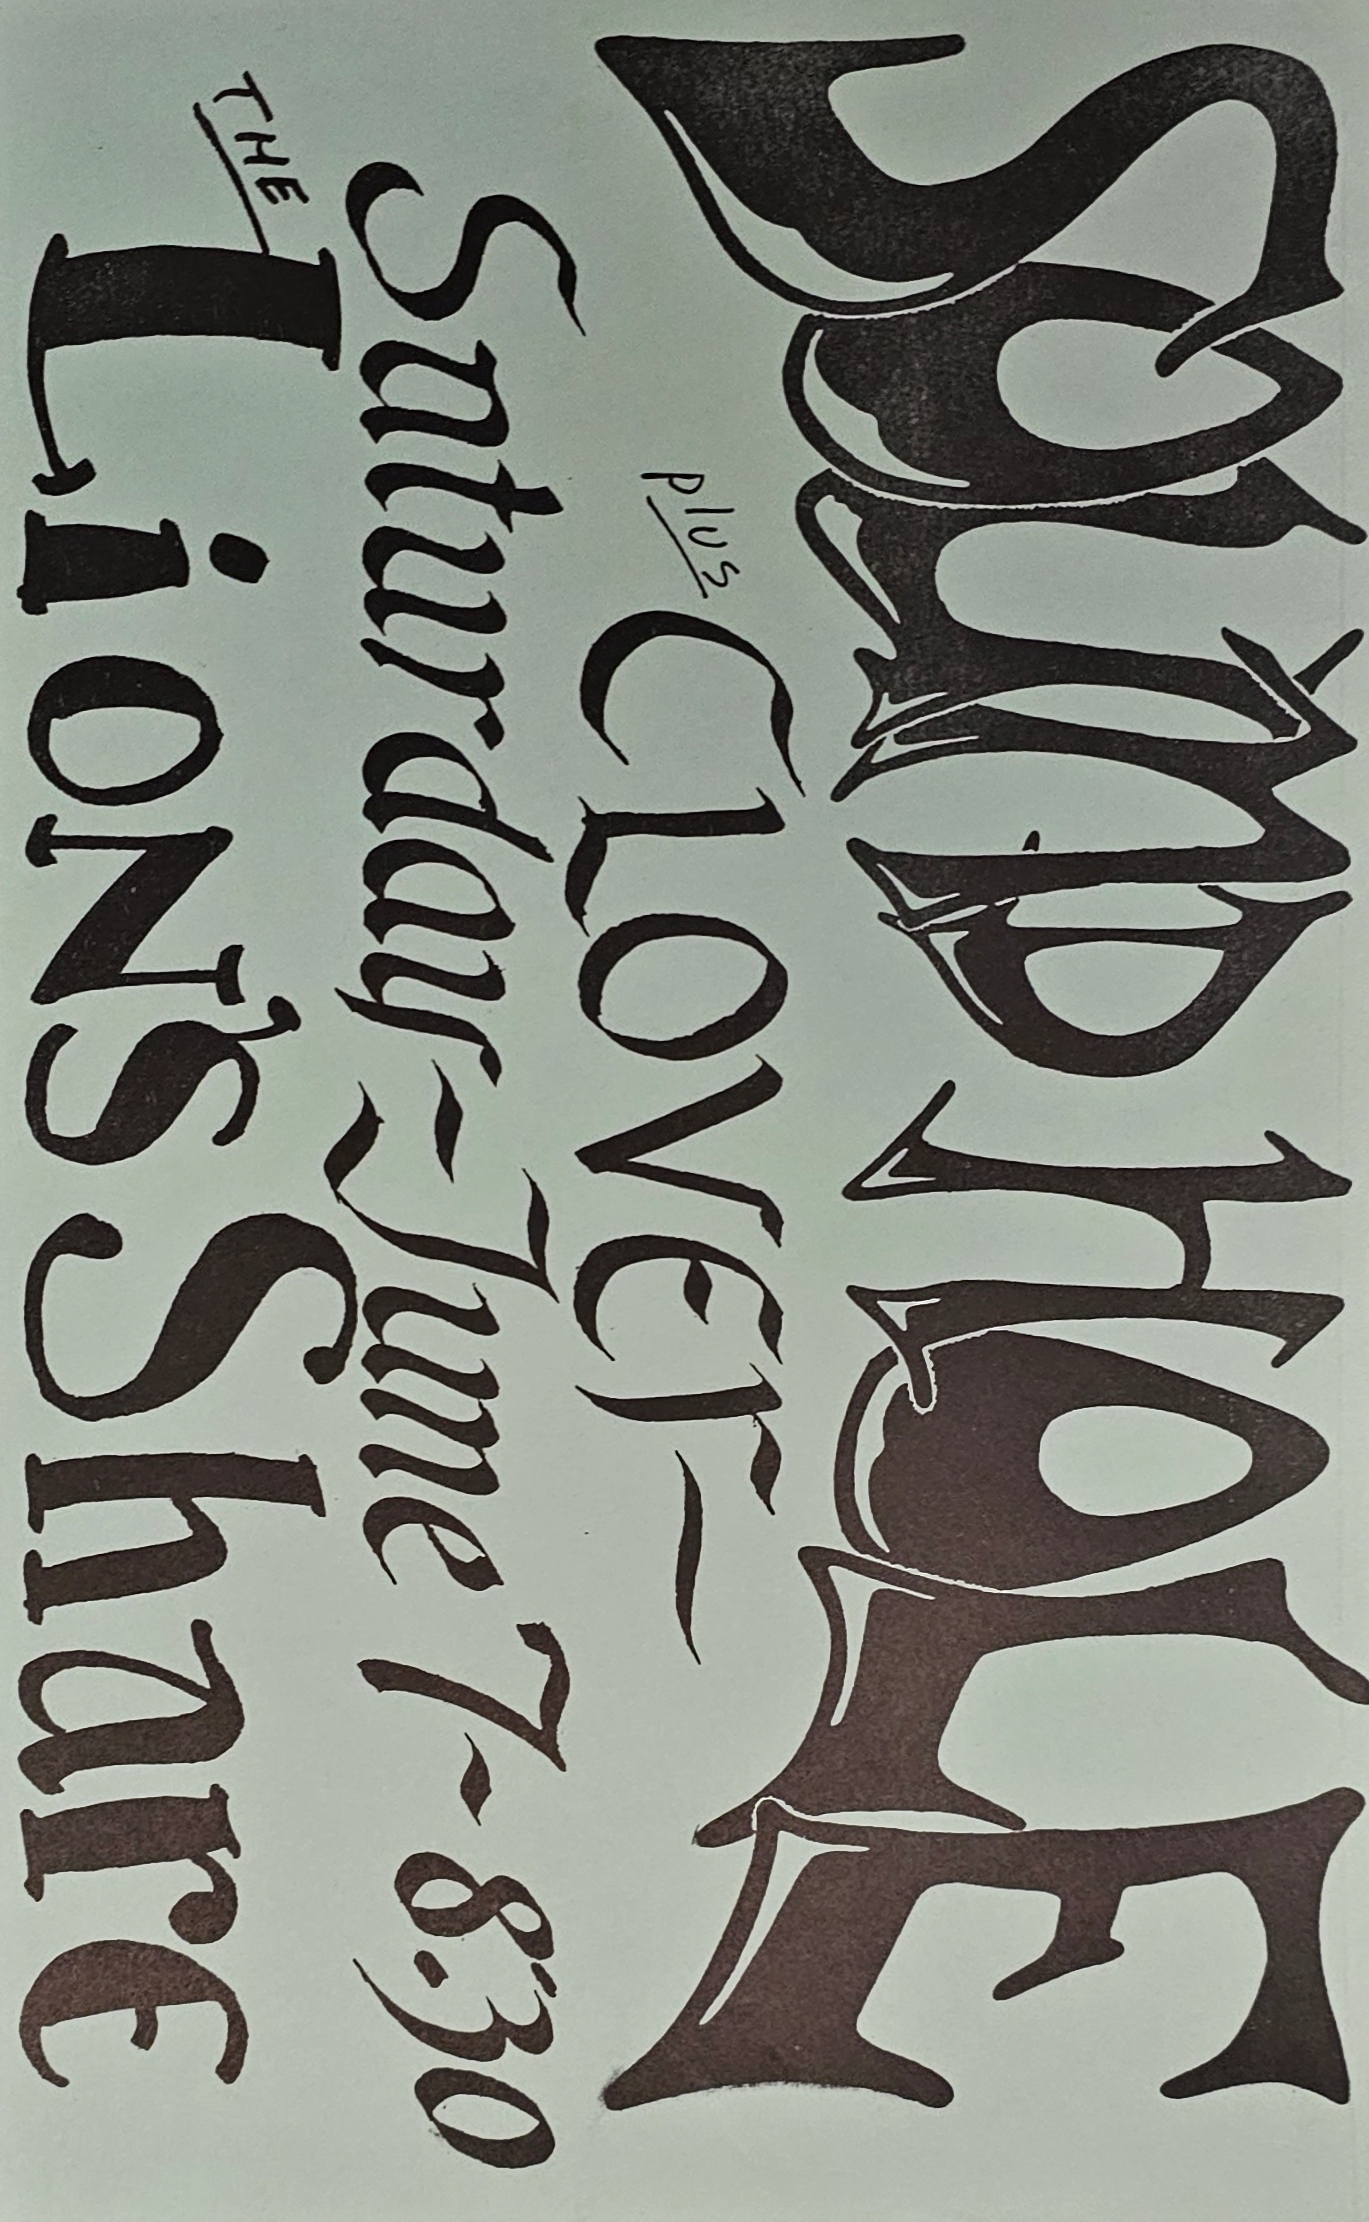 SOUND HOLE
plus
CLOVER —
Saturday - June 7 - 8:30
THE
LiON'S SharE